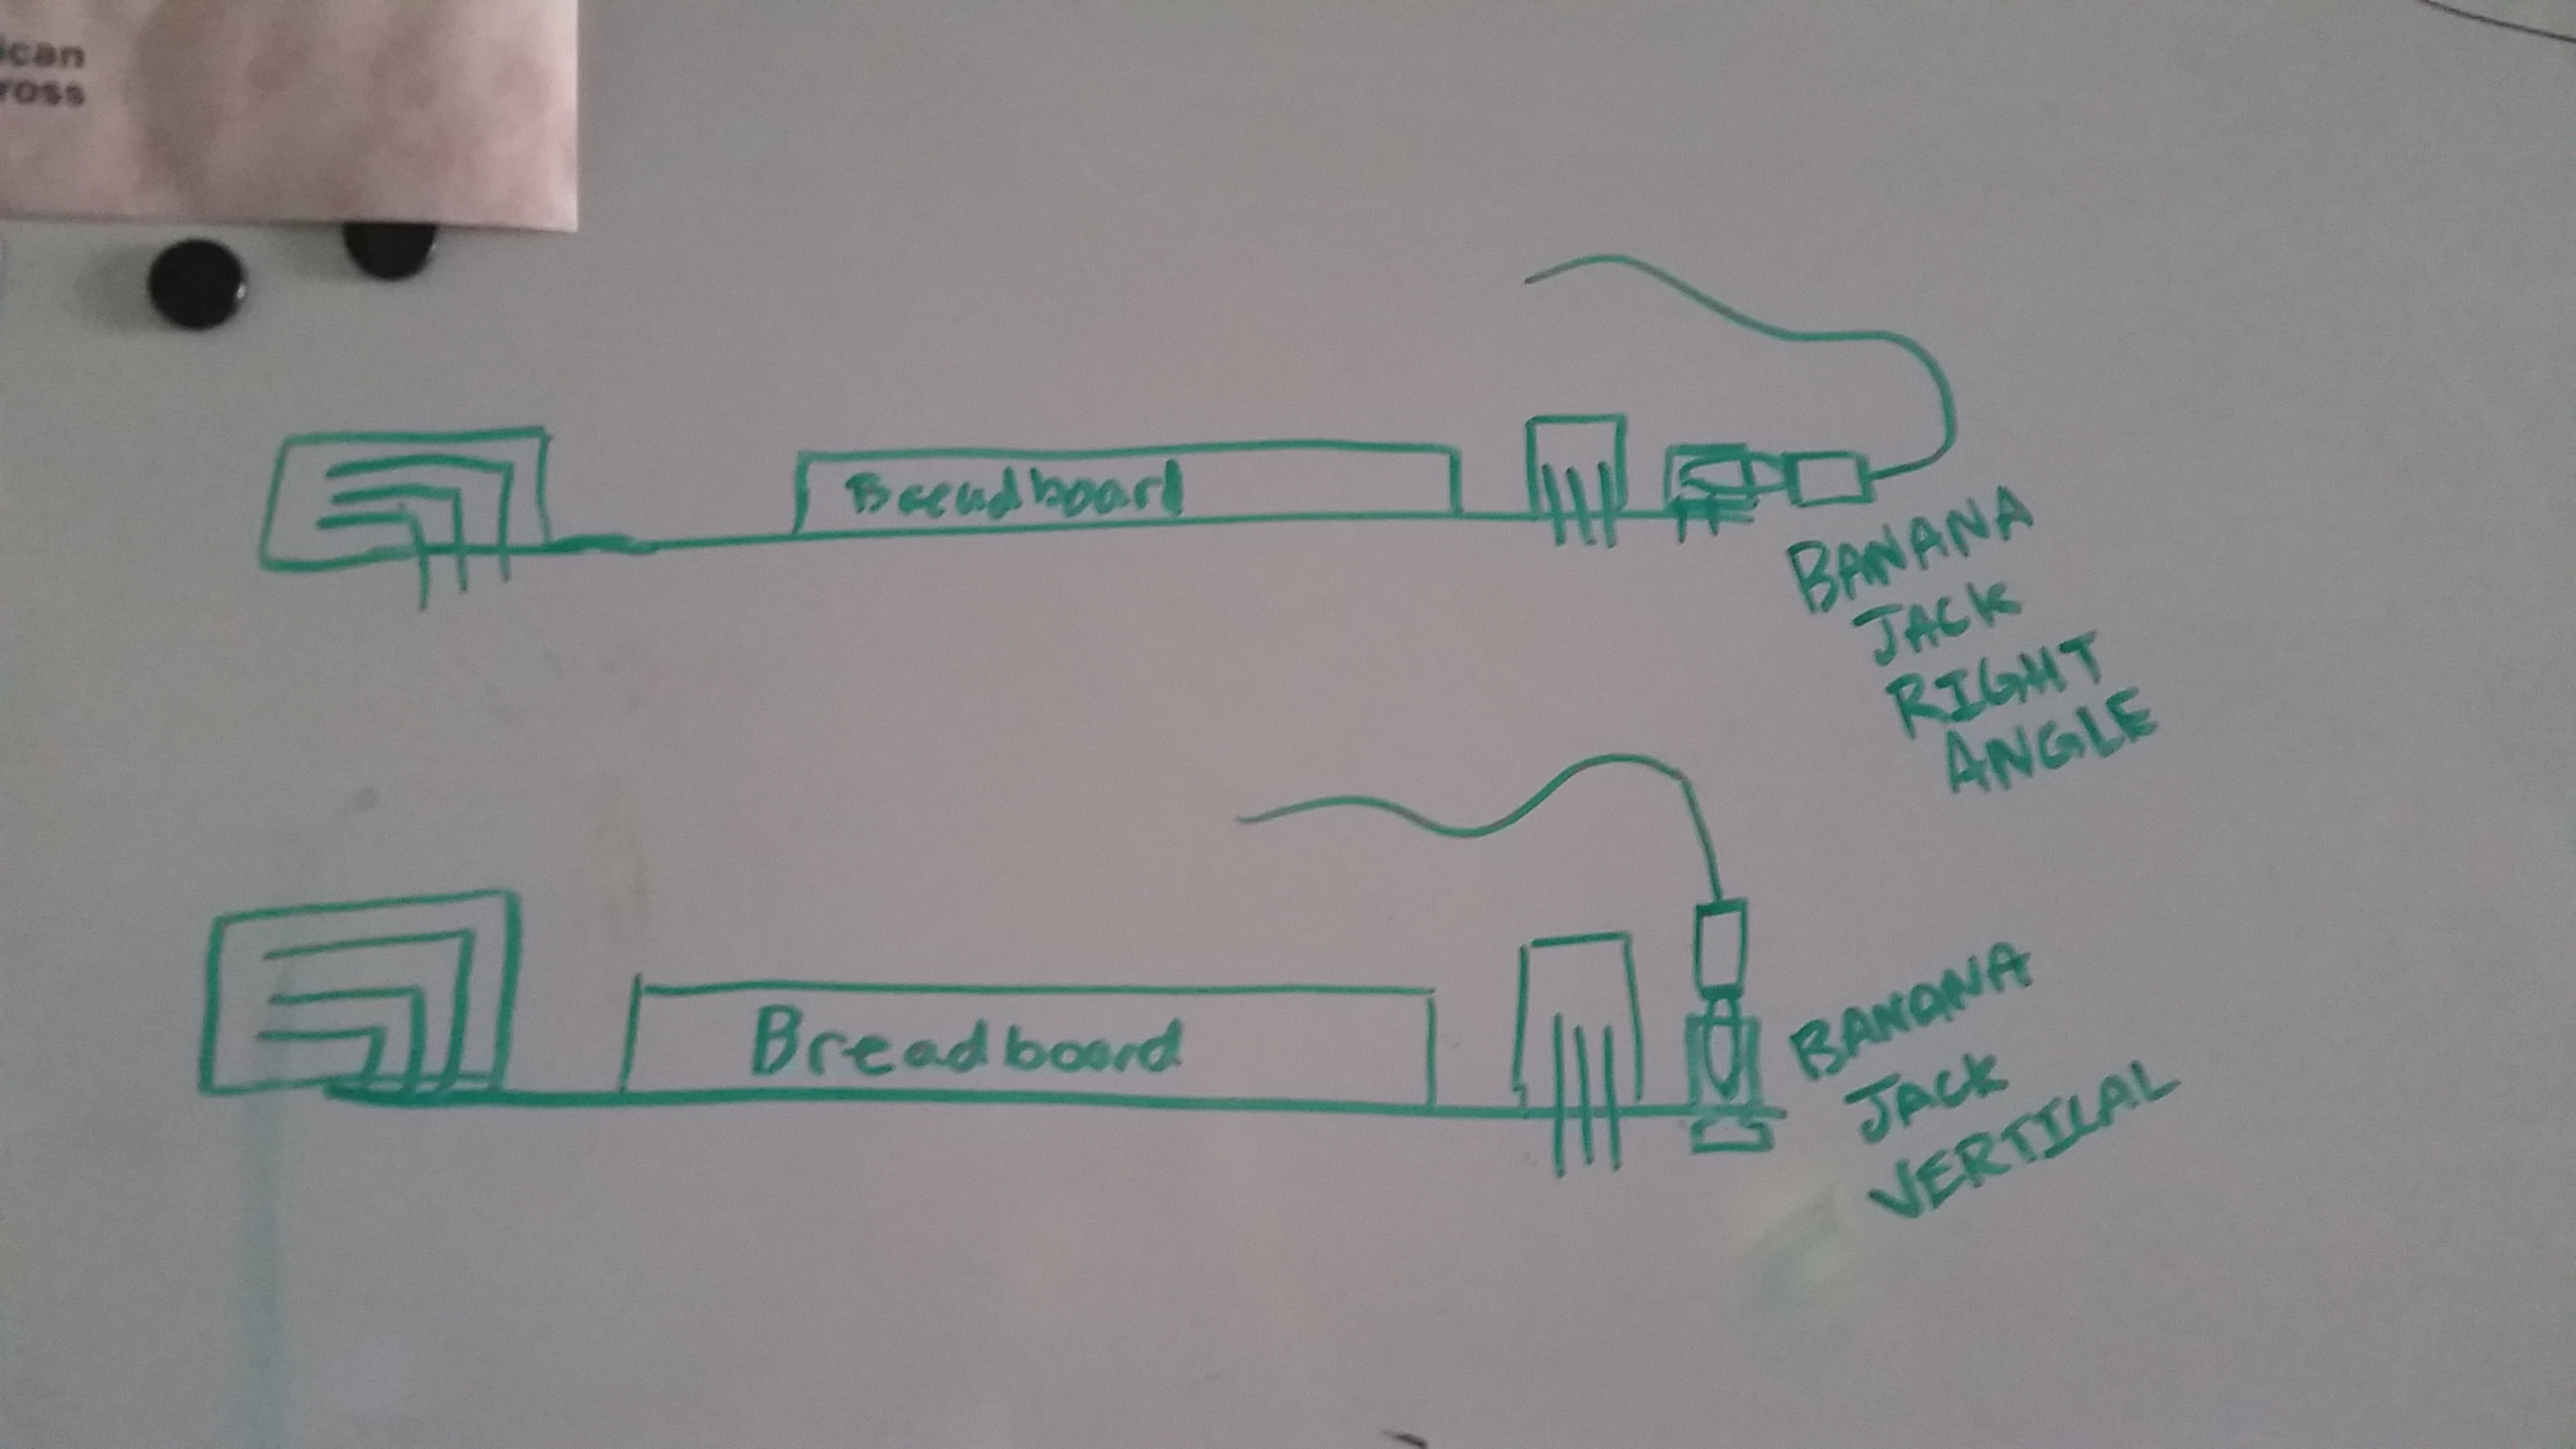 ican
ross
Breadboard
BANANA
JACK
RIGHT
ANGLE
Breadboard
BANANA
JACK
VERTICAL